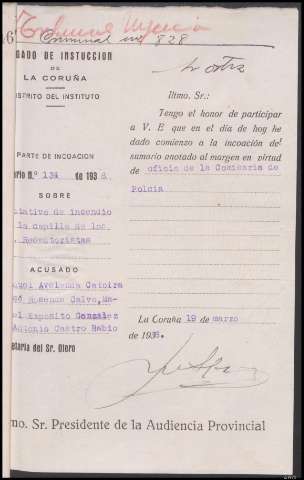 Tribunal Urgencia
Criminal nº 828
GADO DE INSTUCCION
DE
LA CORUÑA
DISTRITO DEL INSTITUTO
PARTE DE INCOACION
ario N.º 134 de 1936.
SOBRE
tentativa de incendio
la capilla de los
. Redentoristas
ACUSADO
nuel Avelenda Catoira
sé Rosende Calvo, Ma-
el Expósito González
Antonio Castro Rabio
cretaría del Sr. Otero
Iltmo. Sr.:
Tengo el honor de participar
a V. E que en el día de hoy he
dado comienzo a la incoación del
sumario anotado al margen en virtud
de oficio de la Comisaria de
Polcia
La Coruña 19 de marzo
de 1936.
mo. Sr. Presidente de la Audiencia Provincial